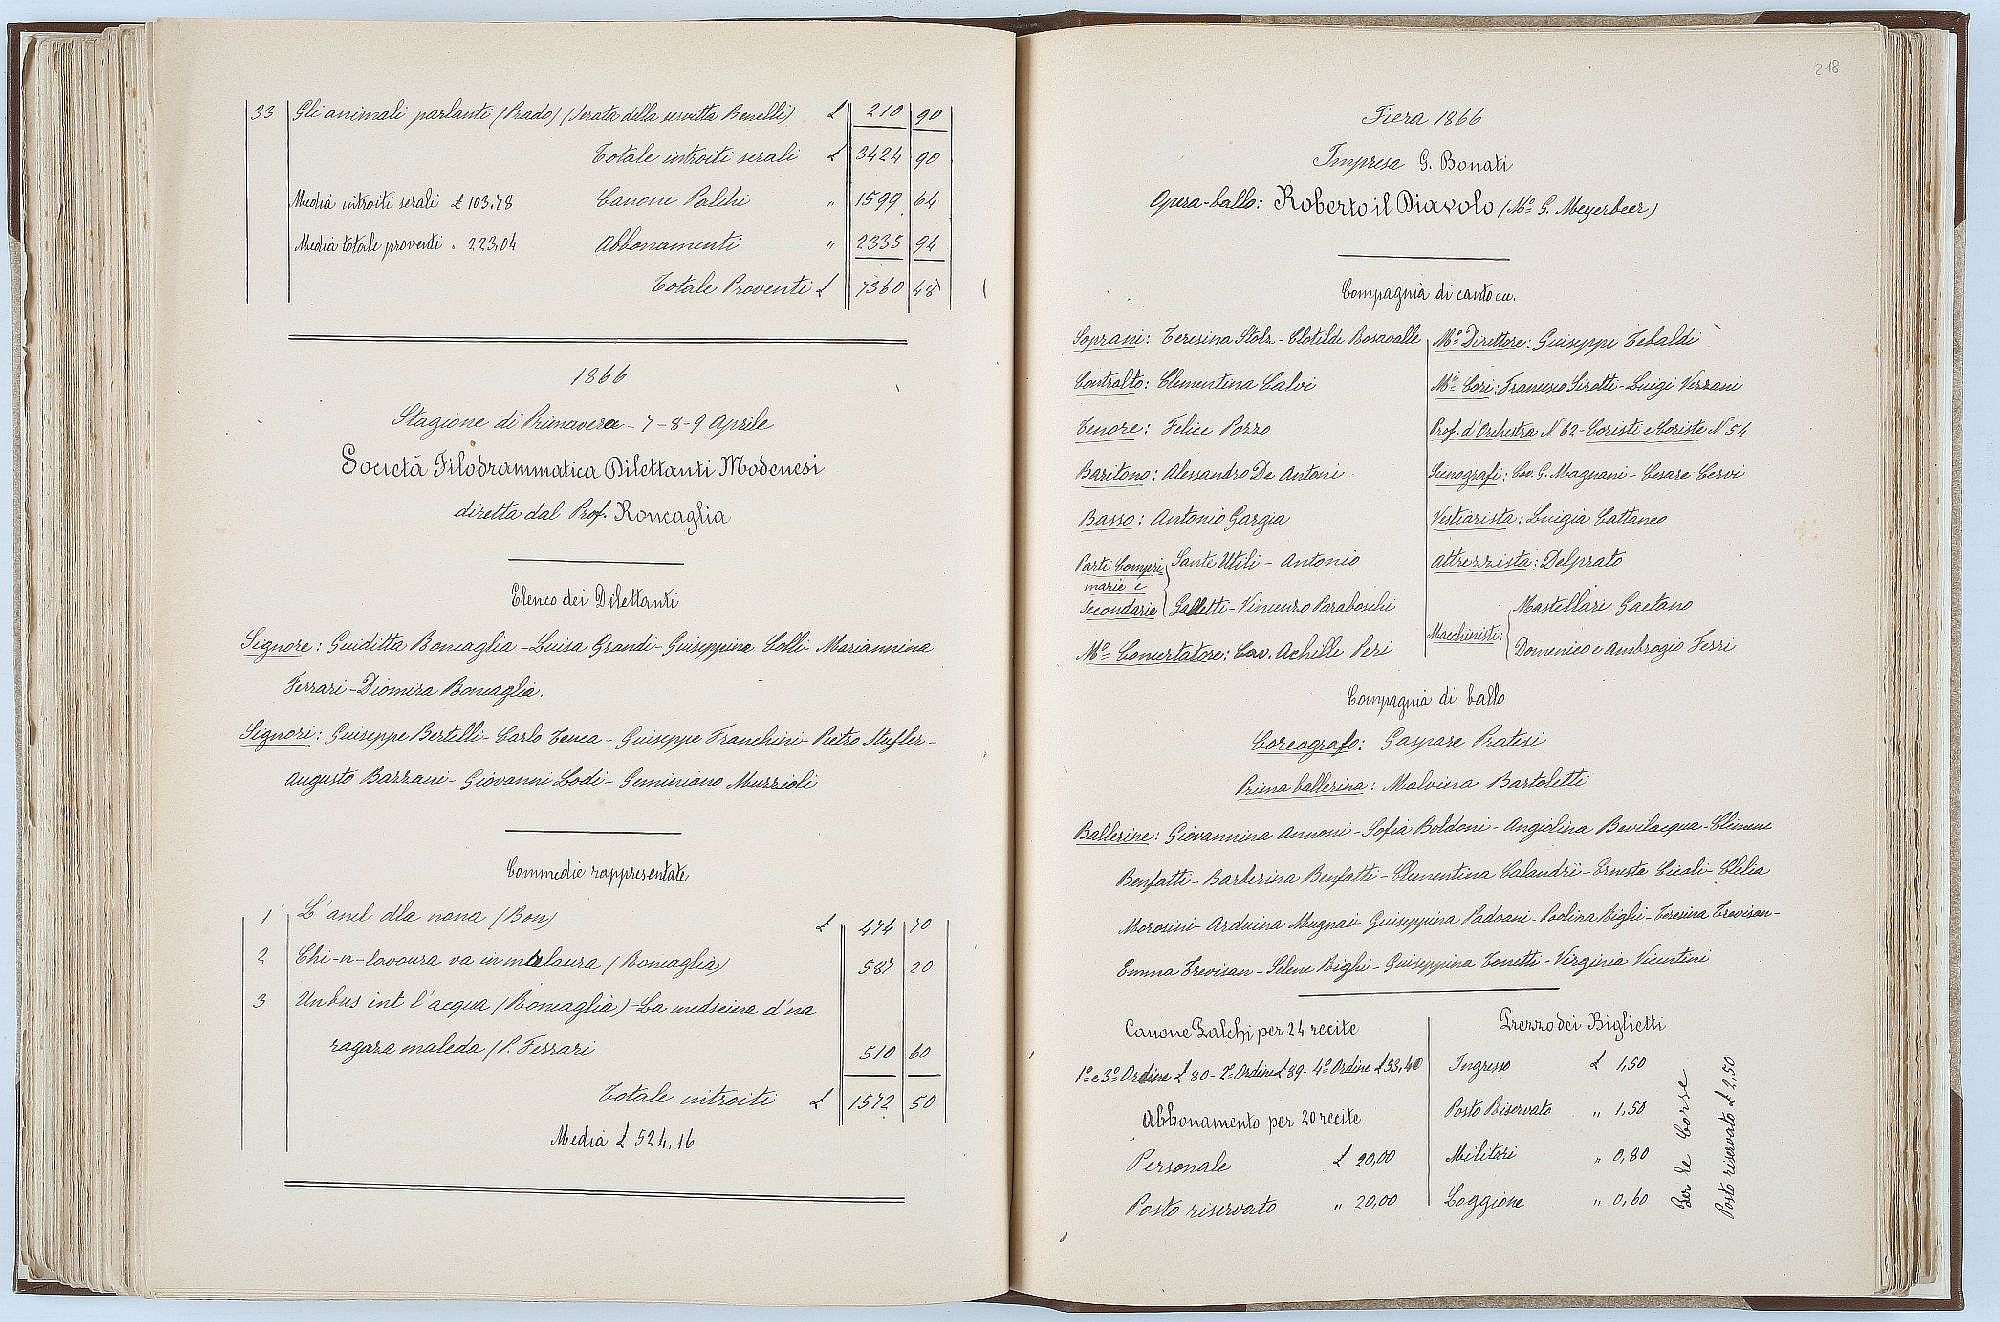 33 Gli animali parlanti (Prado) (Serata della servitta Benelli) £ 210 90
Totale introiti serali £ 3424 90
Media introiti serali £ 103.78 Canone Palchi " 1599 64
Media totale proventi " 223,04 Abbonamenti " 2335 94
Totale Proventi £ 7360 48
1866
Stagione di Primavera - 7 - 8 - 9 Aprile
Società Filodrammatica Dilettanti Modenesi
diretta dal Prof. Roncaglia
Elenco dei Dilettanti
Signore: Guiditta Roncaglia - Luisa Grandi - Guiseppina Colli - Mariannina
Ferrari - Diomira Roncaglia.
Signori: Guiseppe Bertelli - Carlo Tenca - Guiseppe Franchini - Pietro Stufler -
Augusto Barzani - Giovanni Lodi - Geminiano Muzzioli
Commedie rappresentate
1 L'anel dla nona (Bon) £ 474 70
2 Chi-n-lavoura va in malaura (Roncaglia) 587 20
3 Un bus int l'acqua (Roncaglia) - La medseina d'na
ragaza maleda (P. Ferrari 510 60
Totale introiti £ 1572 50
Media £ 524,16
218
Fiera 1866
Impresa G. Bonati
Opera-ballo: Roberto il Diavolo (Mo. G. Meyerbeer)
Compagnia di canto ecc.
Soprani: Teresina Stolz - Clotilde Boscavalle
Contralto: Clementina Calvi
Tenore: Felice Pozzo
Baritono: Alessandro De Antoni
Basso: Antonio Gargia
Parti Compri
marie e
Secondarie
Sante Utili - Antonio
Galletti - Vincenzo Paraboschi
Mo. Concertatore: Cav. Achille Peri
Mo. Direttore: Guiseppe Tebaldi
Mi. Cori: Francesco Sirotti - Luigi Vezzani
Prof. d'Orchestra N 62 - Coristi e Coriste N 54
Scenografi: Cav. G. Magnani - Cesare Cervi
Vestiarista: Luigia Cattaneo
Attrezzista: Delprato
Macchinisti:
Mastellari Gaetano
Domenico e Ambrogio Ferri
Compagnia di ballo
Coreografo: Gaspare Pratesi
Prima ballerina: Malvina Bartoletti
Ballerine: Giovannina Annoni - Sofia Boldoni - Angiolina Bevilacqua - Climene
Benfatti - Barberina Benfatti - Clementina Calandri - Ernesta Cicoli - Clelia
Morosini - Arduina Mugnai - Guiseppina Padoani - Paolina Righi - Teresina Trevisan -
Emma Trevisan - Selene Righi - Guiseppina Tonetti - Virginia Vicentini
Canone Palchi per 24 recite
1o. e 3o. Ordine £ 80 - 2o. Ordine £ 89 - 4o. Ordine £ 33,40
Abbonamento per 20 recite
Personale £ 20,00
Posto riservato " 20,00
Prezzo dei Biglietti
Ingresso £ 1,50
Posto Riservato " 1,50
Militari " 0,80
Loggione " 0,60
Per le Corse
Posto riservato £ 2,50